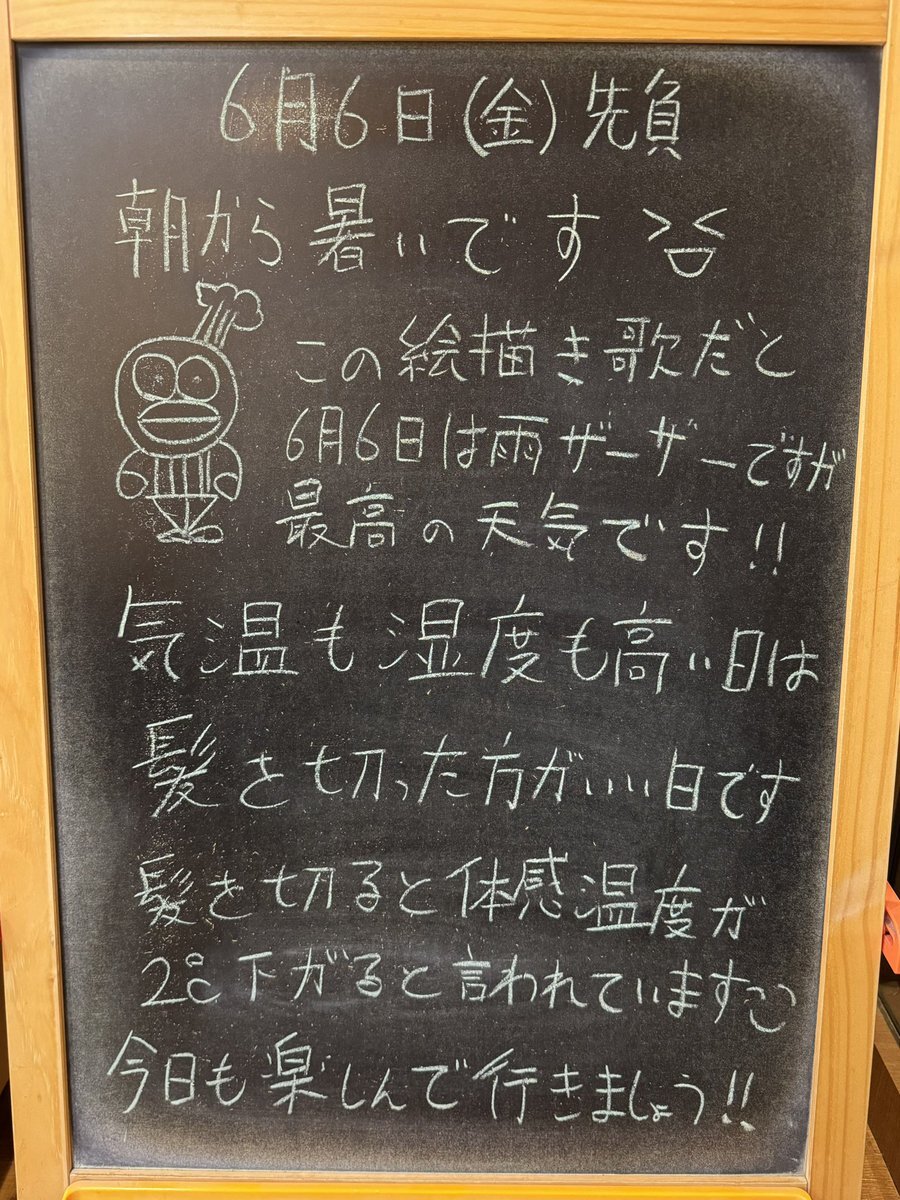 6月6日(金)先負
朝から暑いです
この絵描き歌だと
6月6日は雨ザーザーですが
最高の天気です!!
気温も湿度も高い日は
髪を切った方がいい日です
髪を切ると体感温度が
2℃下がると言われています
今日も楽しんで行きましょう!!